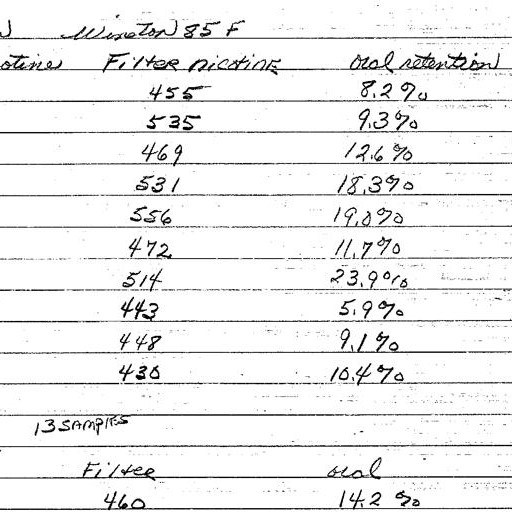 Winston 85 F
otine Filter nicotine oral retention
455 8.2%
535 9.3%
469 12.6%
531 18.3%
556 19.0%
472 11.7%
514 23.9%
443 5.9%
448 9.1%
430 10.4%
13 SAMPLES
Filter oral
460 14.2%